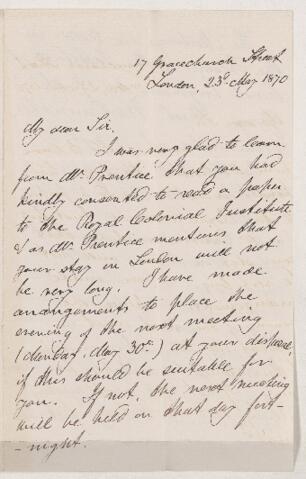 17 Gracechurch Street
London, 23d May 1870
My dear Sir,
I was very glad to learn
from Mr. Prentice that you had
kindly consented to read a paper
to the Royal Colonial Institute
& as Mr. Prentice mentions that
your stay in London will not
be very long. I have made
arrangements to place the
evening of the next meeting
(Monday, May 30th) at your disposal,
if this should be suitable for
you. If not, the next meeting
will be held on that day fort-
-night.